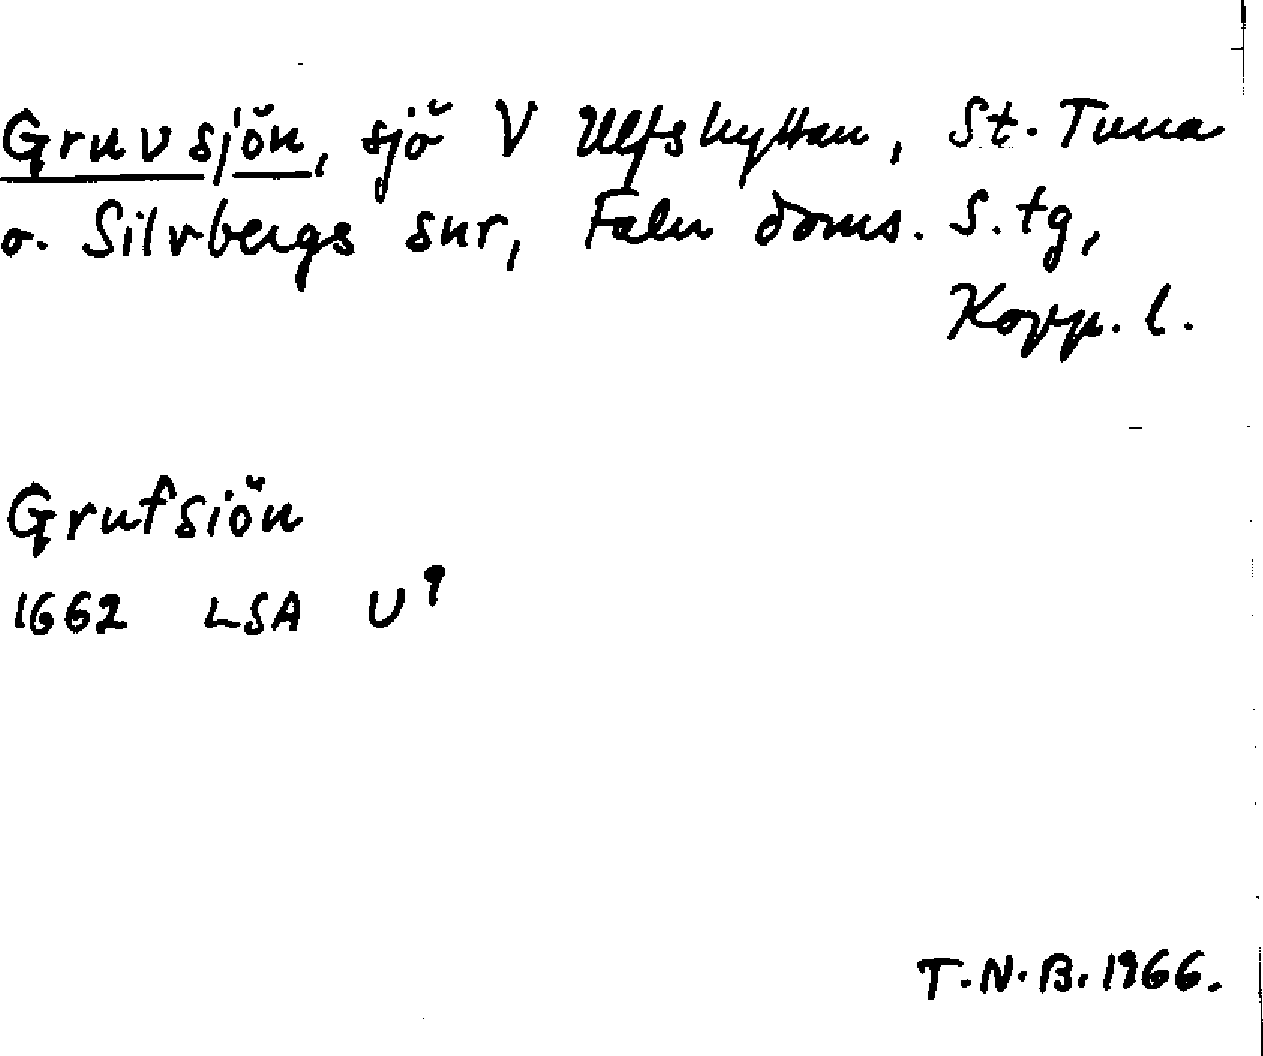 Gruvsjön, sjö V Ulfshyttan, St. Tuna
o. Silvbergs snr, Falu doms. S. tg,
Kopp. l.
Grufsiön
1662 LSA U⁹
T.N.B. 1966.